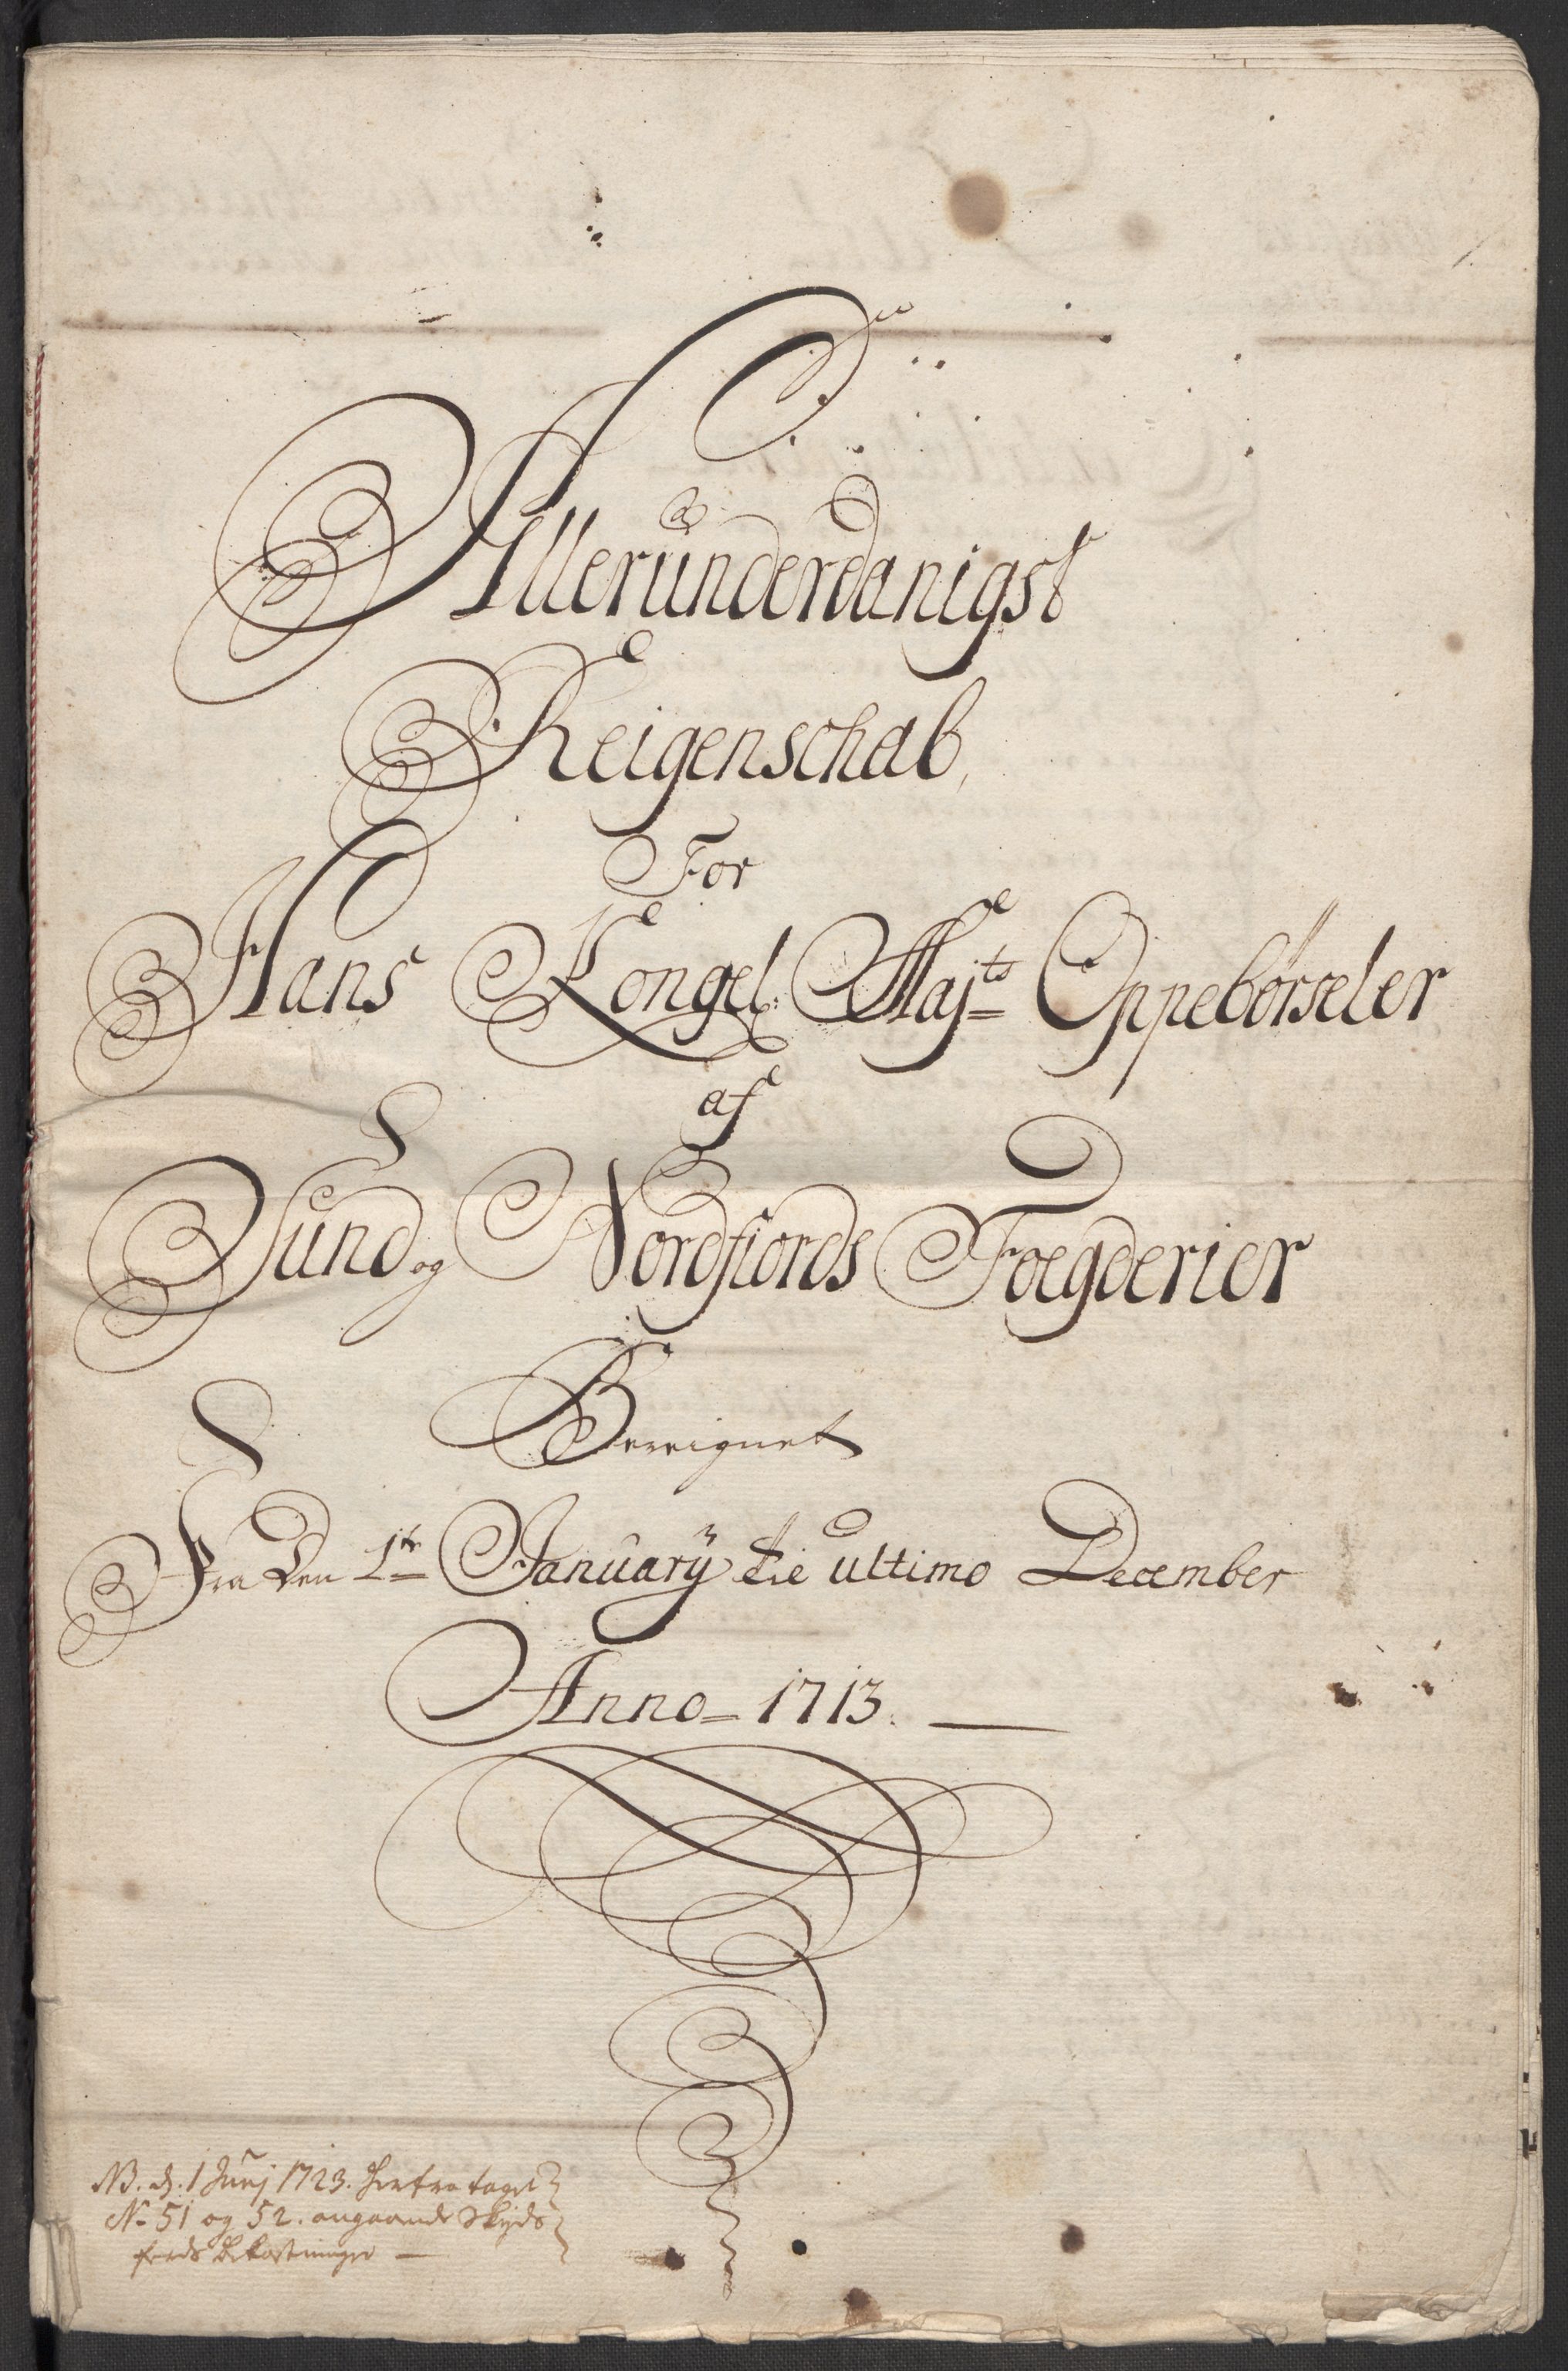 Alleründerdanigst
Reigenschab,
For
Hans Kongel: Majts Oppebörseler
af
Sünd og Nordfiords Foegderier
Bereignet
Fra den 1te Januarÿ tie ultimo December
Anno 1713.
NB. d. 1 Junj 1723. herfra taget
No 51 og 52. angaaende Skÿds
ferds bekostninger